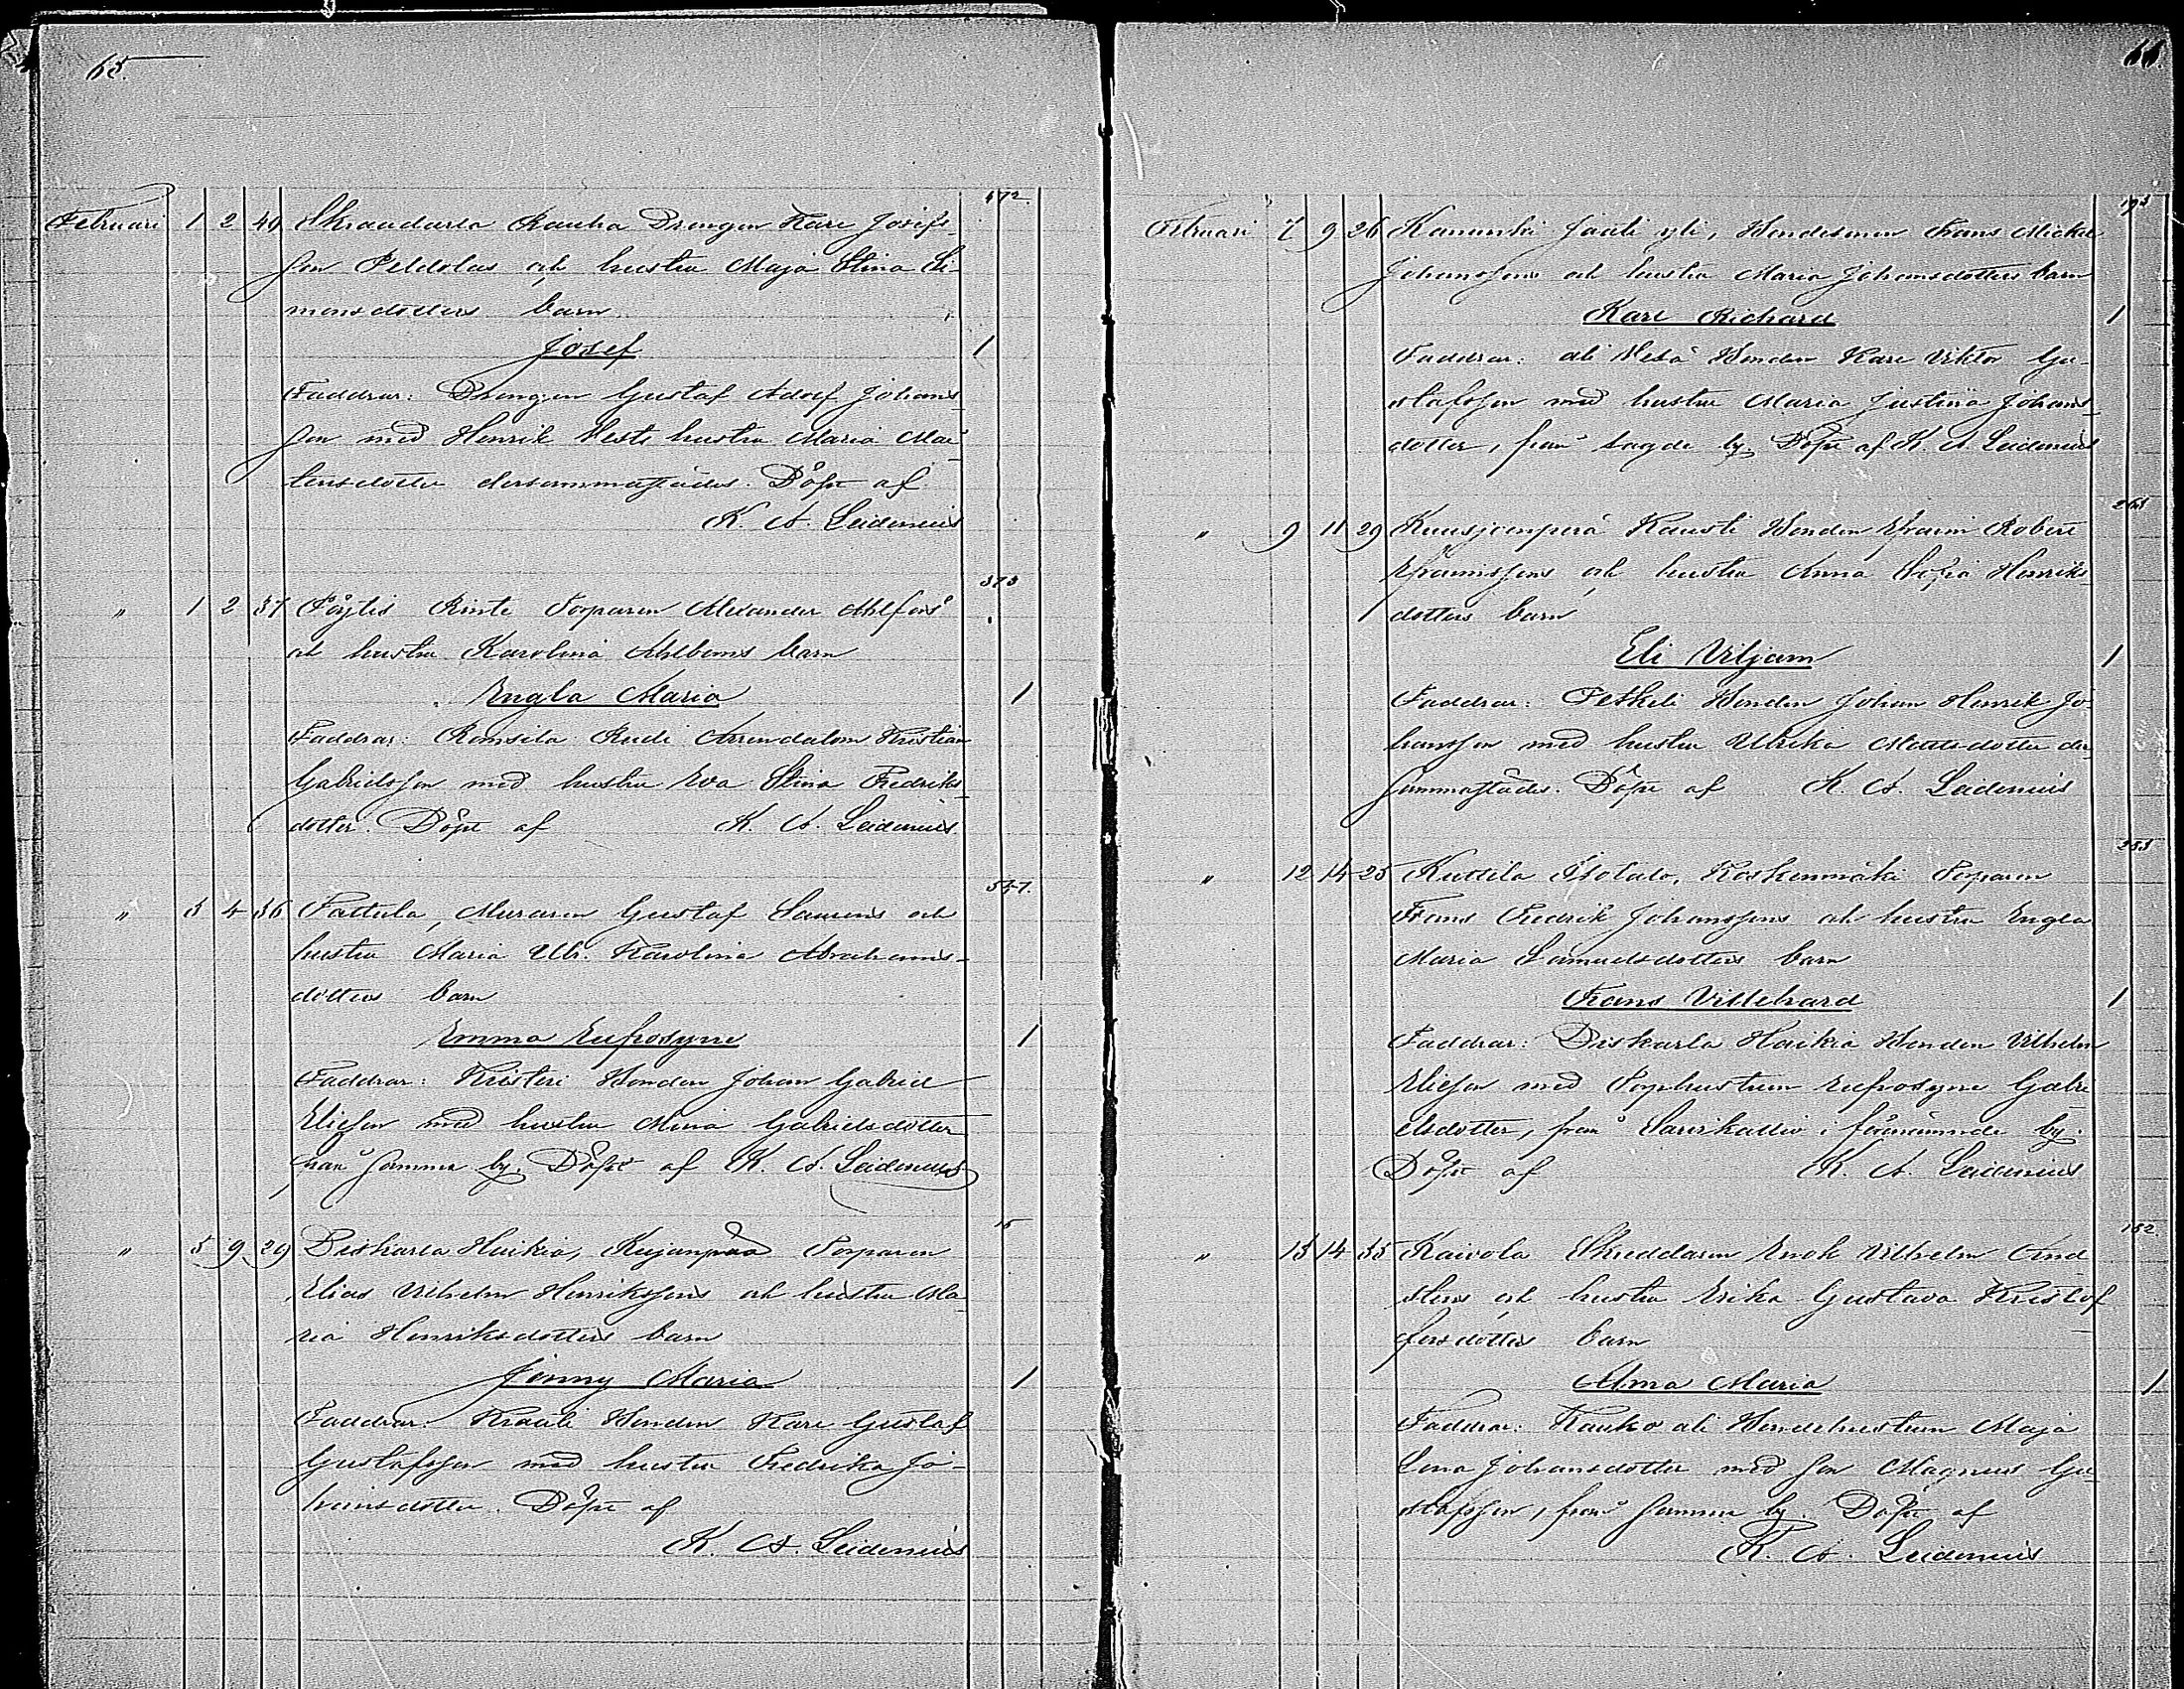 65.
472.
Februari 1 2 40 Skraadarla Rauha Drengen Karl Josefs-
son Peldolas och hustru Maja Stina Si-
monsdotters barn
Josef 1
Faddrar: Drengen Gustaf Adolf Johans-
son med Henrik Vests hustru Maria Mar-
tensdotter dersammastädes. Döpt af
K. A. Leidenius
373
" 1 2 37 Pöytis Rinte Torparen Alexander Ahlfors
och hustru Karolina Ahlboms barn
Engla Maria 1
Faddrar: Ronsila Rudi Arrendatorn Kristian
Gabrielsson med hustru Eva Stina Fredriks-
dotter. Döpt af K. A. Leidenius.
347.
" 3 4 36 Pattula, Muraren Gustaf Saurens och
hustru Maria Ulr. Karolina Abrahams-
dotters barn
Emma Eufrosyne 1
Faddrar: Kristeri Bonden Johan Gabriel
Eliasson med hustru Mina Gabrielsdotter
från samma by. Döpt af K. A. Leidenius
15
" 5 9 29 Diskarla Haikia, Kujanpää Torparen
Elias Vilhelm Henrikssons och hustru Ma-
ria Henriksdotters barn
Jenny Maria 1
Faddrar: Krauli Bonden Karl Gustaf
Gustafsson med hustru Fredrika Jo-
hansdotter. Döpt af
K. A. Leidenius
66.
193
Februari 7 9 26 Kanunki Jaali yli, Bondesonen Frans Mickel
Johanssons och hustru Maria Johansdotters barn
Karl Richard 1
Faddrar: ali Vesa Bonden Karl Viktor Gu-
stafsson med hustru Maria Justina Johans-
dotter, från sagde by. Döpt af K. A. Leidenius
268
" 9 11 29 Kuusjoenperä Kausti Bonden Efraim Robert
Efraimssons och hustru Anna Sofia Henriks-
dotters barn
Eli Viljam 1
Faddrar: Peskili Bonden Johan Henrik Jo-
hansson med hustru Ulrika Mattsdotter der-
sammastädes. Döpt af K. A. Leidenius
253
" 12 14 25 Kuttila Isotalo, Koskenmäki Torparen
Frans Fredrik Johanssons och hustru Engla
Maria Samuelsdotters barn
Frans Villehard 1
Faddrar: Diskarla Haikia Bonden Vilhelm
Eliasson med Torphustrun Eufrosyne Gabri-
elsdotter, från Sarvikallio i förenämnde by.
Döpt af K. A. Leidenius
182.
" 13 14 35 Raivola Skreddaren Enok Vilhelm And-
stens och hustru Erika Gustava Kristof-
fersdotters barn
Alma Maria 1
Faddrar: Kauko ali Bondehustrun Maja
Lena Johansdotter med son Magnus Gu-
stafsson, från samma by. Döpt af
K. A. Leidenius